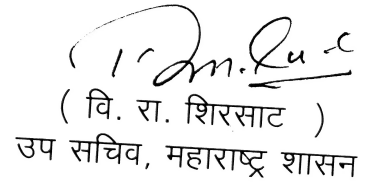 ( वि. रा. शिरसाट )
उप सचिव, महाराष्ट्र शासन